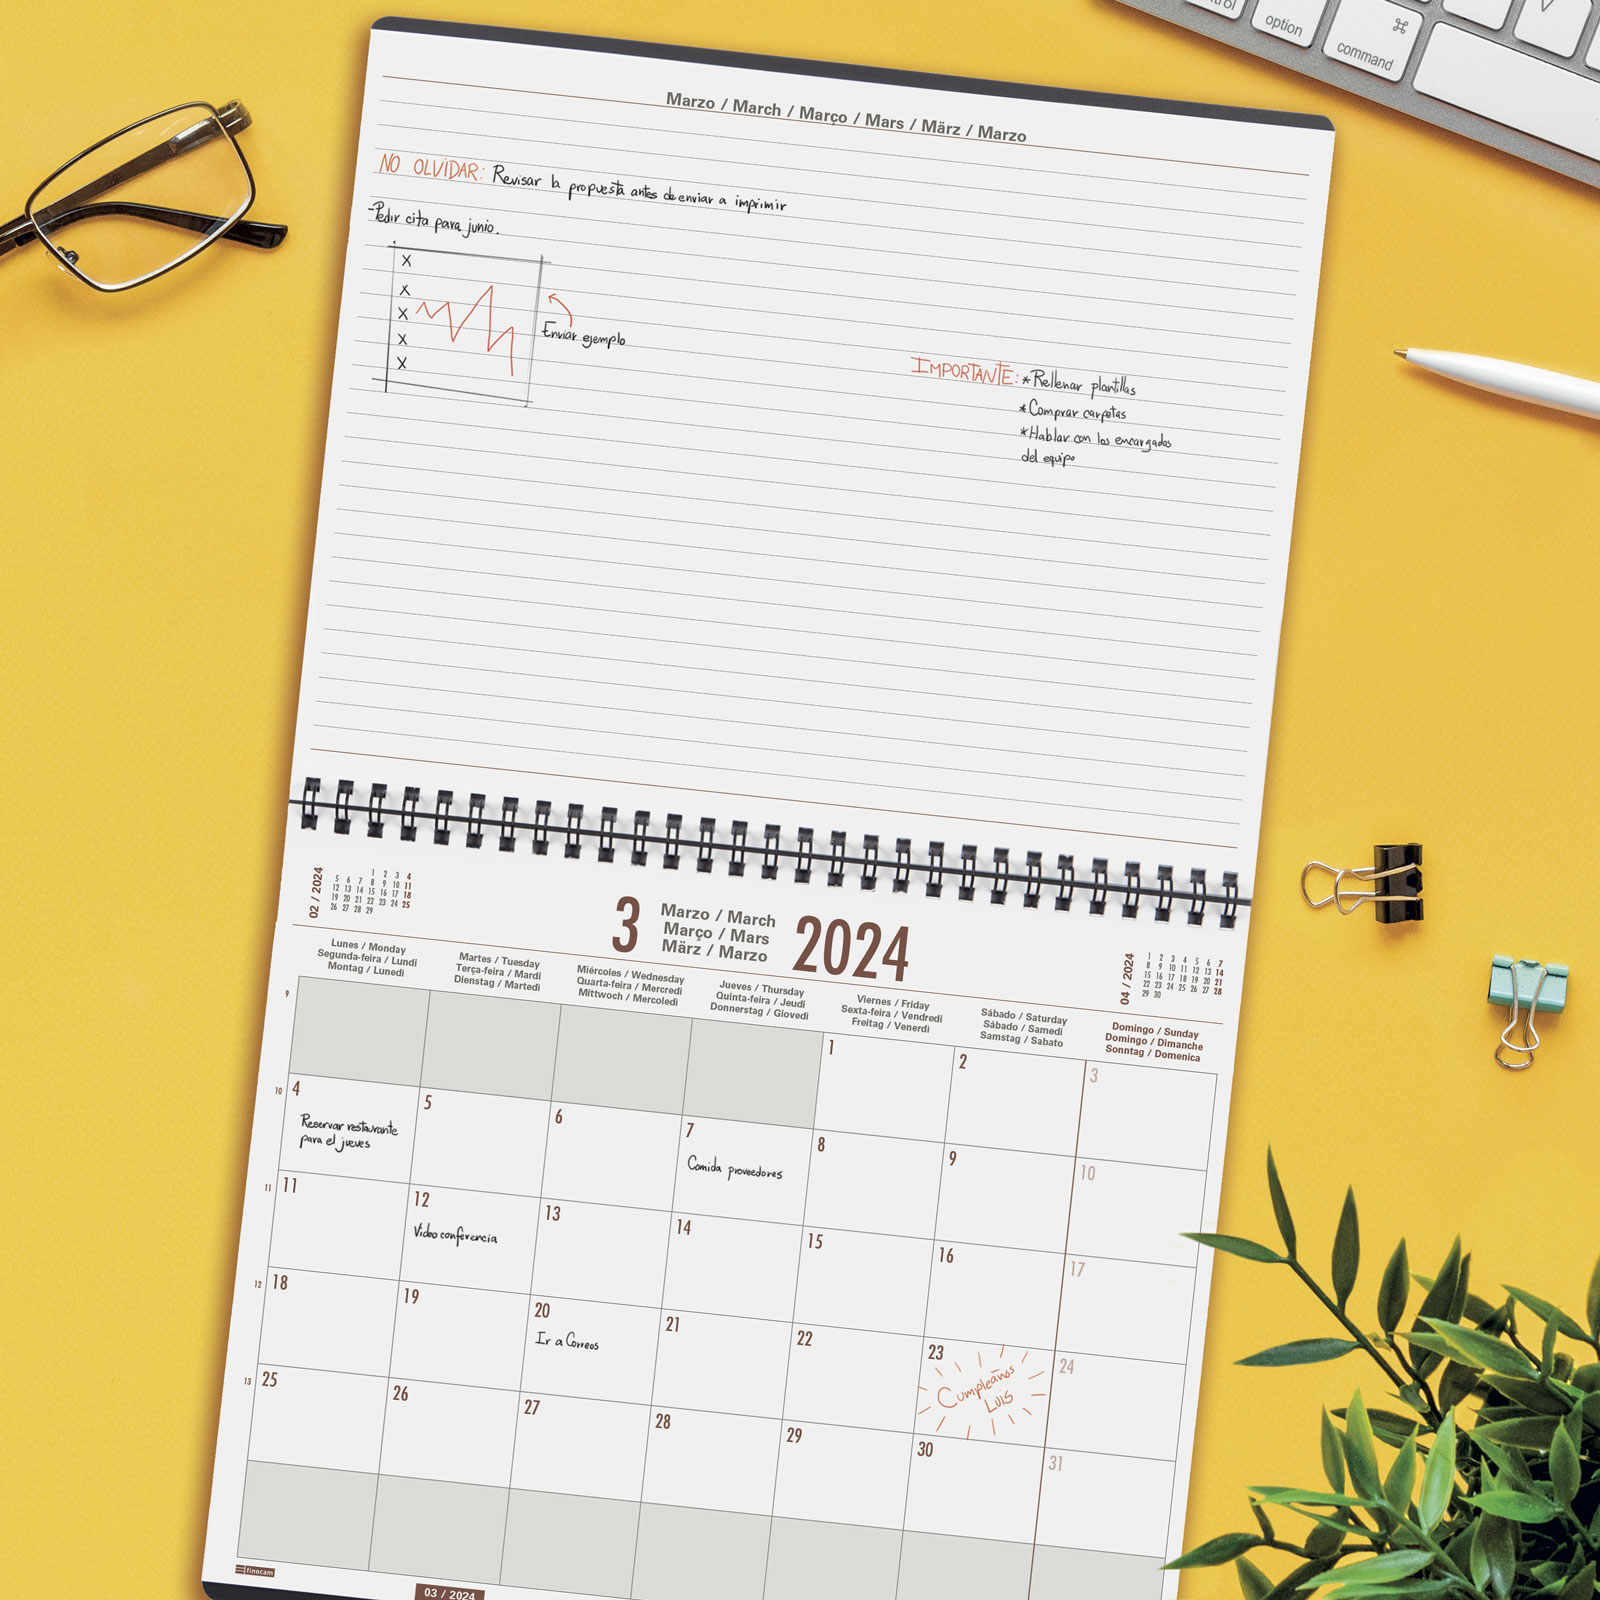 option
command
⌘
Marzo / March / Março / Mars / März / Marzo
NO OLVIDAR: Revisar la propuesta antes de enviar a imprimir
-Pedir cita para junio.
X
X
X
X
X
Enviar ejemplo
IMPORTANTE: *Rellenar plantillas
*Comprar carpetas
*Hablar con los encargados
del equipo
02 / 2024
1 2 3 4
5 6 7 8 9 10 11
12 13 14 15 16 17 18
19 20 21 22 23 24 25
26 27 28 29
3
Marzo / March
Março / Mars
März / Marzo
2024
04 / 2024
1 2 3 4 5 6 7
8 9 10 11 12 13 14
15 16 17 18 19 20 21
22 23 24 25 26 27 28
29 30
Lunes / Monday
Segunda-feira / Lundi
Montag / Lunedì
Martes / Tuesday
Terça-feira / Mardi
Dienstag / Martedì
Miércoles / Wednesday
Quarta-feira / Mercredi
Mittwoch / Mercoledì
Jueves / Thursday
Quinta-feira / Jeudi
Donnerstag / Giovedì
Viernes / Friday
Sexta-feira / Vendredi
Freitag / Venerdì
Sábado / Saturday
Sábado / Samedi
Samstag / Sabato
Domingo / Sunday
Domingo / Dimanche
Sonntag / Domenica
9
1 2 3
10
4 5 6 7 8 9 10
Reservar restaurante
para el jueves
Comida proveedores
11
11 12 13 14 15 16 17
Video conferencia
12
18 19 20 21 22 23 24
Ir a Correos
Cumpleaños
Luis
13
25 26 27 28 29 30 31
finocam
03 / 2024